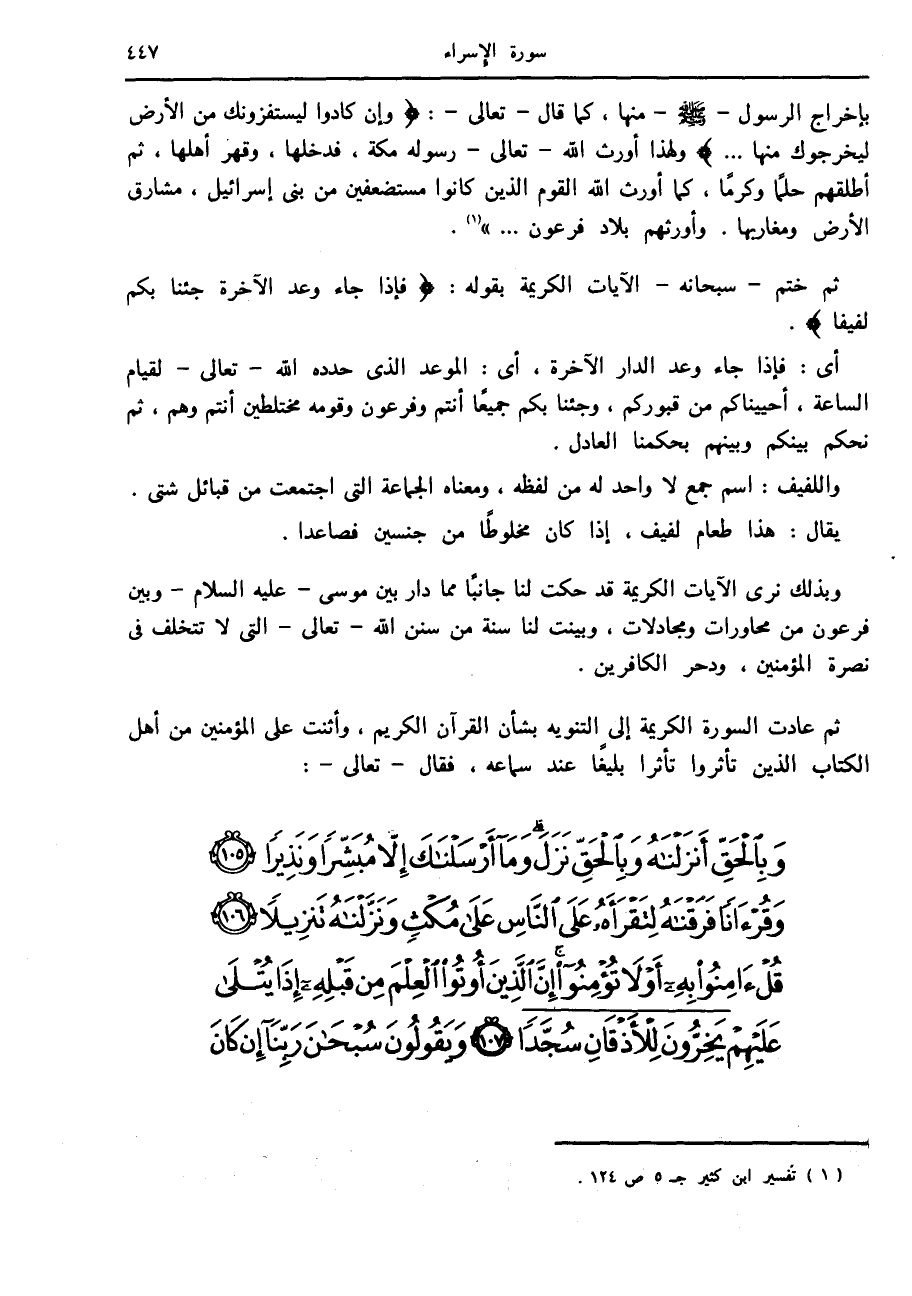 سورة الإسراء ٤٤٧
بإخراج الرسول - ﷺ - منها ، كما قال - تعالى - : ﴿ وإن كادوا ليستفزونك من الأرض
ليخرجوك منها ... ﴾ ولهذا أورث الله - تعالى - رسوله مكة ، فدخلها ، وقهر أهلها ، ثم
أطلقهم حلمًا وكرمًا ، كما أورث الله القوم الذين كانوا مستضعفين من بنى إسرائيل ، مشارق
الأرض ومغاربها . وأورثهم بلاد فرعون ... »(١) .
ثم ختم - سبحانه - الآيات الكريمة بقوله : ﴿ فإذا جاء وعد الآخرة جئنا بكم
لفيفا ﴾ .
أى : فإذا جاء وعد الدار الآخرة ، أى : الموعد الذى حدده الله - تعالى - لقيام
الساعة ، أحييناكم من قبوركم ، وجئنا بكم جميعًا أنتم وفرعون وقومه مختلطين أنتم وهم ، ثم
نحكم بينكم وبينهم بحكمنا العادل .
واللفيف : اسم جمع لا واحد له من لفظه ، ومعناه الجماعة التى اجتمعت من قبائل شتى .
يقال : هذا طعام لفيف ، إذا كان مخلوطًا من جنسين فصاعدا .
وبذلك نرى الآيات الكريمة قد حكت لنا جانبًا مما دار بين موسى - عليه السلام - وبين
فرعون من محاورات ومجادلات ، وبينت لنا سنة من سنن الله - تعالى - التى لا تتخلف فى
نصرة المؤمنين ، ودحر الكافرين .
ثم عادت السورة الكريمة إلى التنويه بشأن القرآن الكريم ، وأثنت على المؤمنين من أهل
الكتاب الذين تأثروا تأثرا بليغًا عند سماعه ، فقال - تعالى - :
وَبِٱلْحَقِّ أَنزَلْنَٰهُ وَبِٱلْحَقِّ نَزَلَ ۗ وَمَآ أَرْسَلْنَٰكَ إِلَّا مُبَشِّرًا وَنَذِيرًا ١٠٥
وَقُرْءَانًا فَرَقْنَٰهُ لِتَقْرَأَهُۥ عَلَى ٱلنَّاسِ عَلَىٰ مُكْثٍ وَنَزَّلْنَٰهُ تَنزِيلًا ١٠٦
قُلْ ءَامِنُوا۟ بِهِۦٓ أَوْ لَا تُؤْمِنُوٓا۟ ۚ إِنَّ ٱلَّذِينَ أُوتُوا۟ ٱلْعِلْمَ مِن قَبْلِهِۦٓ إِذَا يُتْلَىٰ
عَلَيْهِمْ يَخِرُّونَ لِلْأَذْقَانِ سُجَّدًا ۩ ١٠٧ وَيَقُولُونَ سُبْحَٰنَ رَبِّنَآ إِن كَانَ
( ١ ) تفسير ابن كثير جـ ٥ ص ١٢٤ .